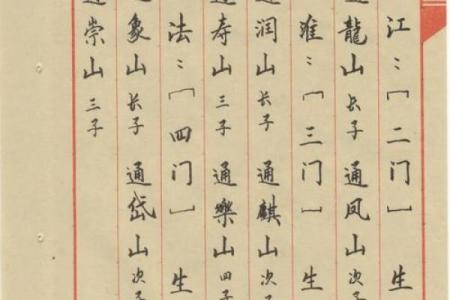 江：[二门] 生
通龍山 长子 通凤山 次子
淮：[三门] 生
通润山 长子 通麒山 次子
通寿山 三子 通樂山 四子
法：[四门] 生
通象山 长子 通岱山 次子
通崇山 三子